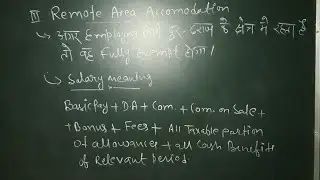 III Remote Area Accomodation
- अगर Employee को दूर-दराज के क्षेत्र में रखा है
तो वह Fully Exempt होगा।
i Salary meaning
Basic Pay + DA + Com. + Com. on Sale +
+ Bonus + Fees + All Taxable partion
of allowances + all Cash Benefits
of Relevant Period.